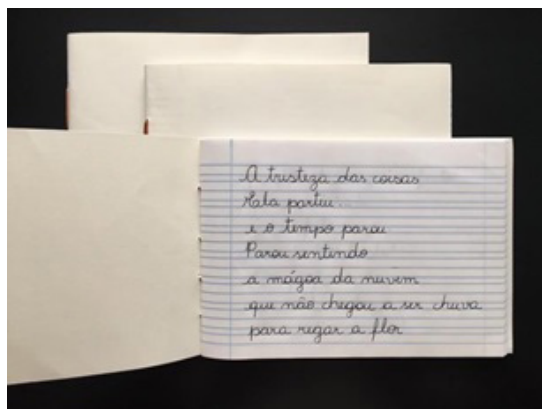 A tristeza das coisas
Ela partiu...
e o tempo parou
Parou sentindo
a mágoa da nuvem
que não chegou a ser chuva
para regar a flor